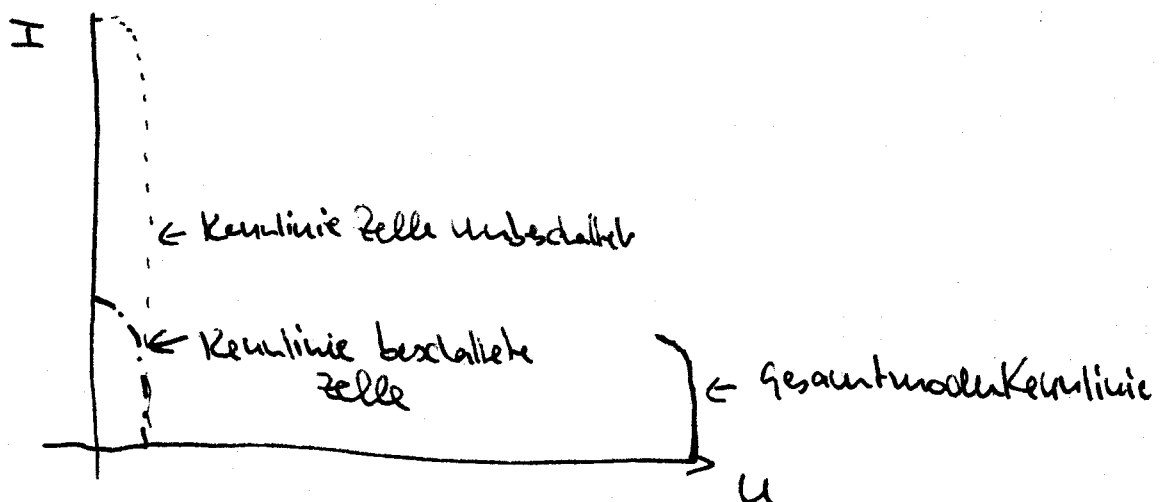 I
← Kennlinie Zelle unbeschattet
← Kennlinie beschattete
Zelle
← Gesamtmodulkennlinie
U